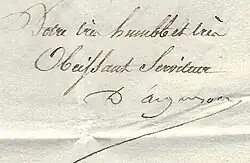 Votre très humble et très
Obeissant Serviteur
D'argenson